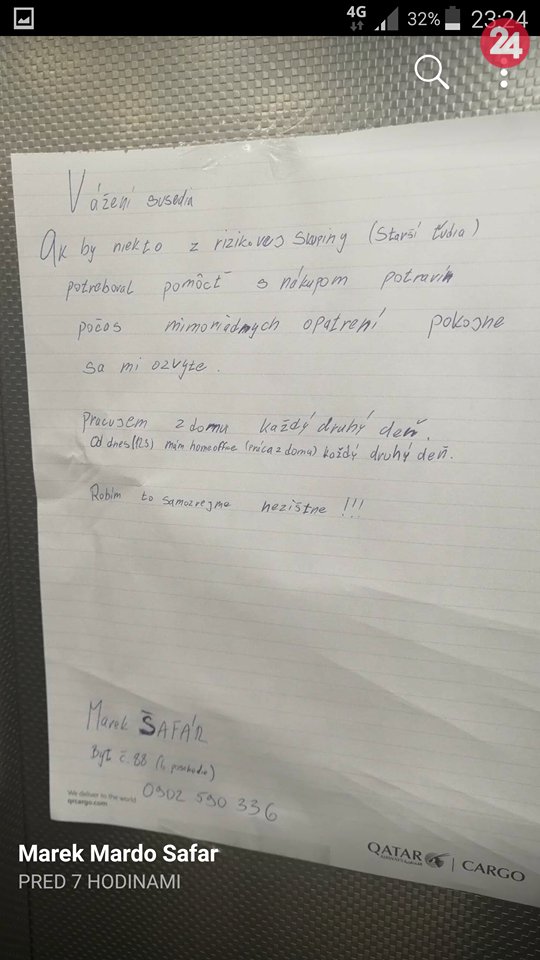 4G 32% 23:24
24
Vážení susedia
Ak by niekto z rizikovej skupiny (starší ľudia)
potreboval pomôcť s nákupom potravín
počas mimoriadnych opatrení pokojne
sa mi ozvyte.
Pracujem z domu každý druhý deň.
Od dnes (12.3) mám homeoffice (práca z domu) každý druhý deň.
Robím to samozrejme nezištne !!!
Marek ŠAFÁR
Byt č. 88 poschodie)
0902 590 336
We deliver to the world
qrcargo.com
QATAR
AIRWAYS
CARGO
Marek Mardo Safar
PRED 7 HODINAMI